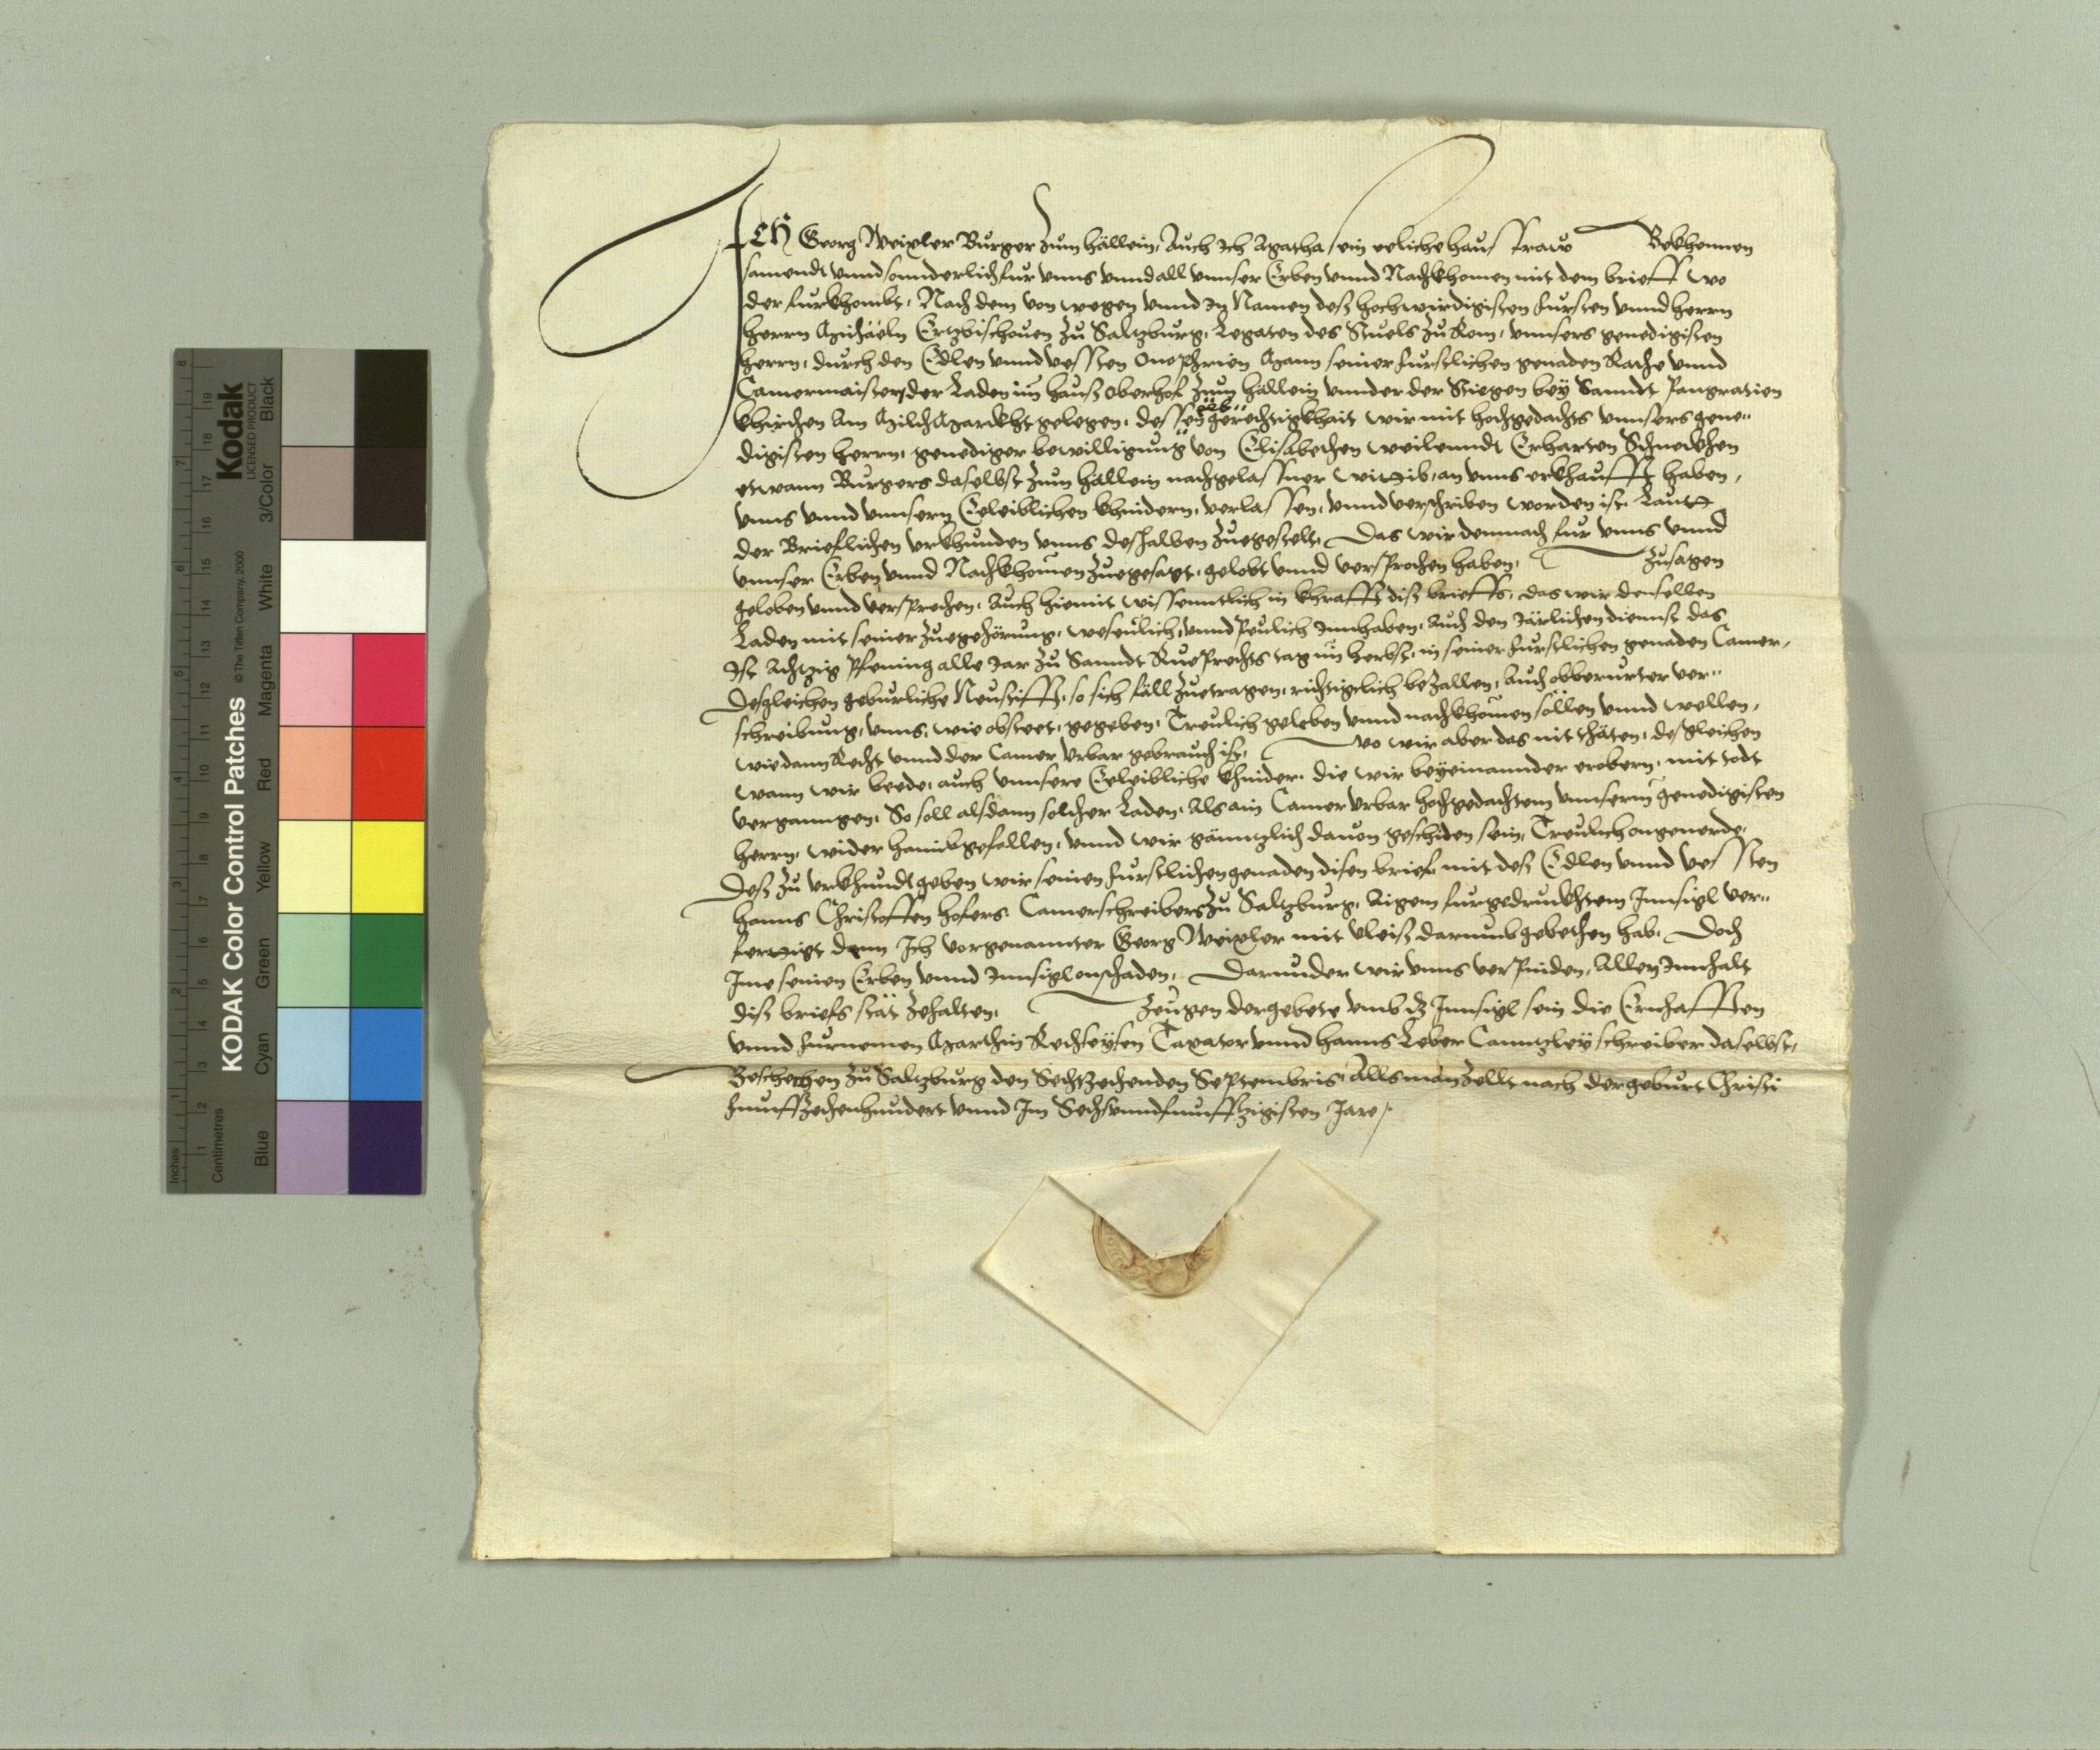 Ich Georg Weixler Burger zum Hällein, Auch Ich Agatha sein eeliche hausfraw Bekhennen
samendt vnnd sonnderlich fur vnns vnnd all vnnser Erben vnnd Nachkhomen mit dem brieff wo
der furkhombt, Nach dem von wegen vnnd In Namen desz hochwirdigisten fursten vnnd herrn
herrn Michaeln Ertzbischouen zu Saltzburg, Legaten des Stuels zu Rom, vnnsers genedigisten
herrn, durch den Edlen vnnd vessten Onophrien Mann seiner furstlichen genaden Rathe vnnd
Camermaister, der Laden im hausz Oberhof zum Hällein vnnder der Stiegen bey Sanndt Pangratien
khirchen Am Milch Marckht gelegen, dessen gerechtigkhait wir mit hochgedachts vnnsers gene-
digisten herrn, genediger bewilligung von Elisabethen weilenndt Erharten Schneckhen
etwann Burgers daselbst zum Hällein nachgelassner wittib, an vnns erkhaufft haben,
vnns vnnd vnnsern Eeleiblichen khindern, verlassen, vnnd verschriben worden ist. Lautt
der Brieflichen vrkhunden vnns deshalben zuegestelt, Das wir demnach fur vnns vnnd
vnnser Erben vnnd Nachkhomen zuegesagt, gelobt vnnd versprochen haben, Zusagen
geloben vnnd versprechen, Auch hiemit wissenntlich in khrafft disz brieffs, das wir denselben
Laden mit seiner zuegehörung, wesenlich, vnnd peulich Innhaben, Auch den Järlichen diennst das
Ist Achtzig Pfening alle Jar zu Sanndt Rueprechts tag im herbst, in seiner furstlichen genaden Camer,
Desgleichen geburliche Neustifft, so sich fäll zuetragen, richtigclich bezallen, Auch obberurter ver-
schreibung, vnns, wie obsteet, gegeben, Treulich geleben vnnd nachkhomen söllen vnnd wellen,
wie dann Recht vnnd der Camer Vrbar gebrauch ist, wo wir aber das nit thäten, desgleichen
wann wir beede, auch vnnsere Eeleibliche khinder, die wir beyeinannder erobern, mit todt
verganngen, So soll alsdann solcher Laden, Als ain Camer Vrbar hochgedachtem vnnserm genedigisten
herrn, wider haimbgefallen, vnnd wir gänntzlich dauon geschiden sein, Treulich ongeuerde,
Desz zu vrkhundt geben wir seinen furstlichen genaden disen brief, mit desz Edlen vnnd vessten
Hanns Christoffen Hofers, Camerschreibers zu Saltzburg, Aigem furgedruckhtem Innsigl ver-
fertigt denn Ich vorgenannter Georg Weixler mit vleisz darumb gebethen hab. Doch
Ime seinen Erben vnnd Innsigl onschaden, Darunder wir vnns verpinden, Allen Innhalt
disz briefs stät zehalten, Zeugen der gebete vmb dz Innsigl sein die Ernhafften
vnnd furnemen Marthin Taxator vnnd Hanns Leber Canntzleyschreiber daselbst,
Beschechen zu Saltzburg den Sechtzehenden Septembris, Alls man zellt nach der geburt Christi
Funffzehenhundert vnnd Im Sechsvnndfunfftzigisten Jare.
KODAK Color Control Patches © The Tiffen Company, 2000
Kodak
LICENSED PRODUCT
Blue Cyan Green Yellow Red Magenta White 3/Color Black
Inches 1 2 3 4 5 6 7 8
Centimetres 1 2 3 4 5 6 7 8 9 10 11 12 13 14 15 16 17 18 19